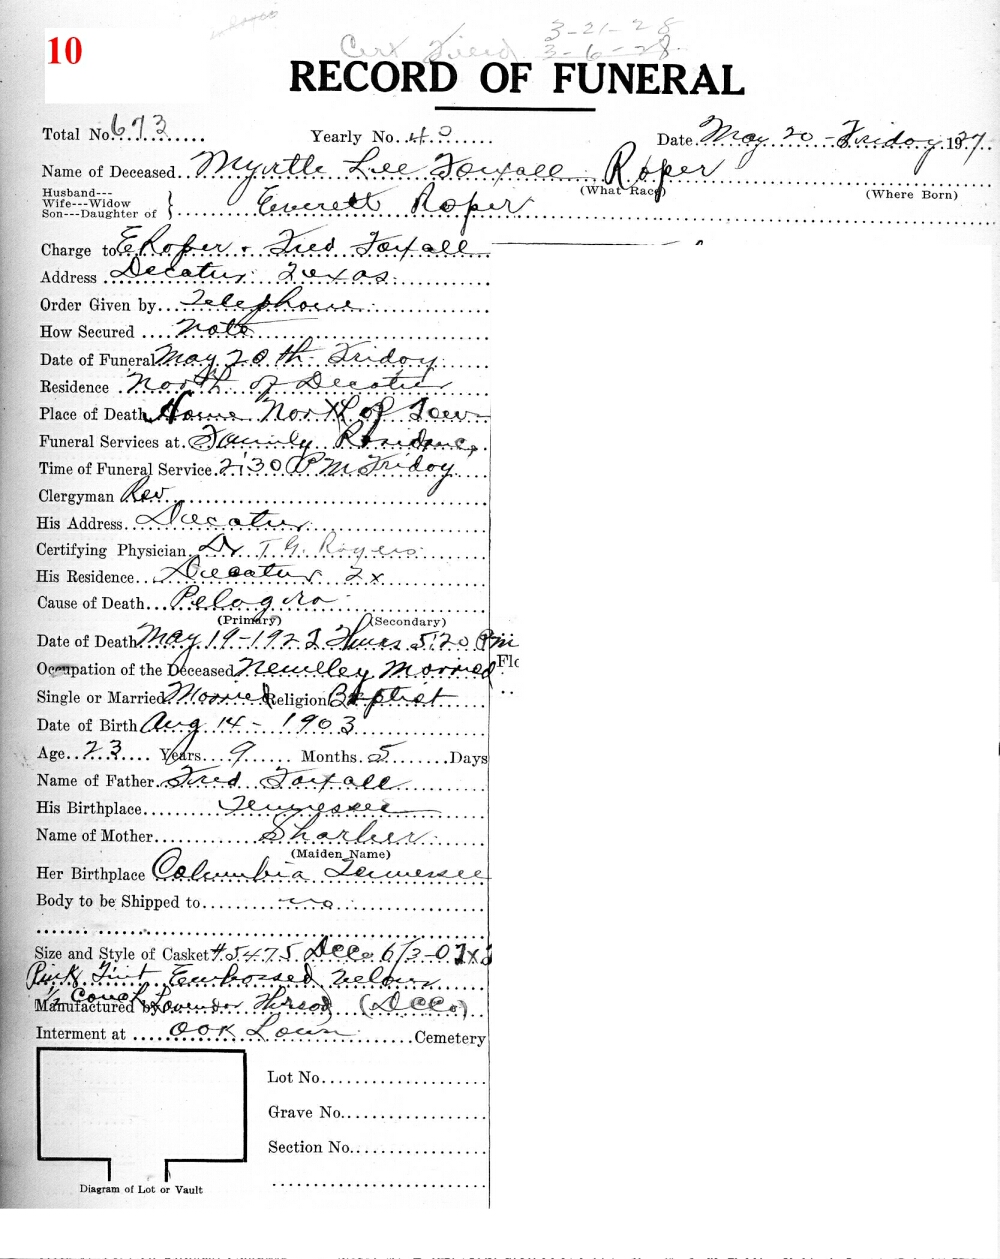 3-21-28
10 Cert Filed 3-6-28
RECORD OF FUNERAL
Total No. 673 Yearly No. 43 Date May 20 - Friday 1927
Name of Deceased Myrtle Lee Foxall Roper
(What Race) (Where Born)
Husband---
Wife---Widow
Son---Daughter of Everett Roper
Charge to E Roper & Fred Foxall
Address Decatur Texas
Order Given by Telephone
How Secured Note
Date of Funeral May 20th - Friday
Residence North of Decatur
Place of Death Home North of Town
Funeral Services at Family Residence
Time of Funeral Service 2:30 P M Friday
Clergyman Rev
His Address Decatur
Certifying Physician Dr T. G. Rogers
His Residence Decatur Tx
Cause of Death Pelogra
(Primary) (Secondary)
Date of Death May 19-1927 Hours 5:20 Pm
Occupation of the Deceased Newlley Married Flo
Single or Married Married Religion Baptist
Date of Birth Aug 14 - 1903
Age 23 Years 9 Months 5 Days
Name of Father Fred Foxall
His Birthplace Tennessee
Name of Mother Sharber
(Maiden Name)
Her Birthplace Columbia Tennessee
Body to be Shipped to no
Size and Style of Casket #5475 Dcco 6/3-0
Pink Tint Embossed Velour
1/2 Couch Lavender
Manufactured by (Dcco)
Interment at Oak Lawn Cemetery
Lot No.
Grave No.
Section No.
Diagram of Lot or Vault